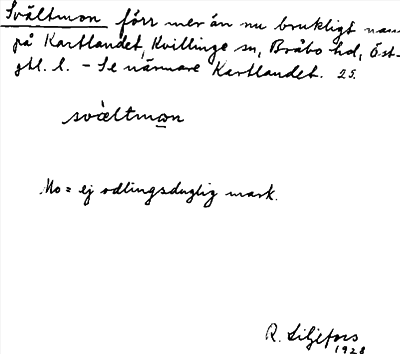 Svältmon förr mer än nu brukligt namn
på Kartlandet, Kvillinge sn, Bråbo hd, Öst-
gtl. l. - Se närmare Kartlandet. 25.
svæ̀ltmo̲n
Mo = ej odlingsduglig mark.
R. Liljefors
1928